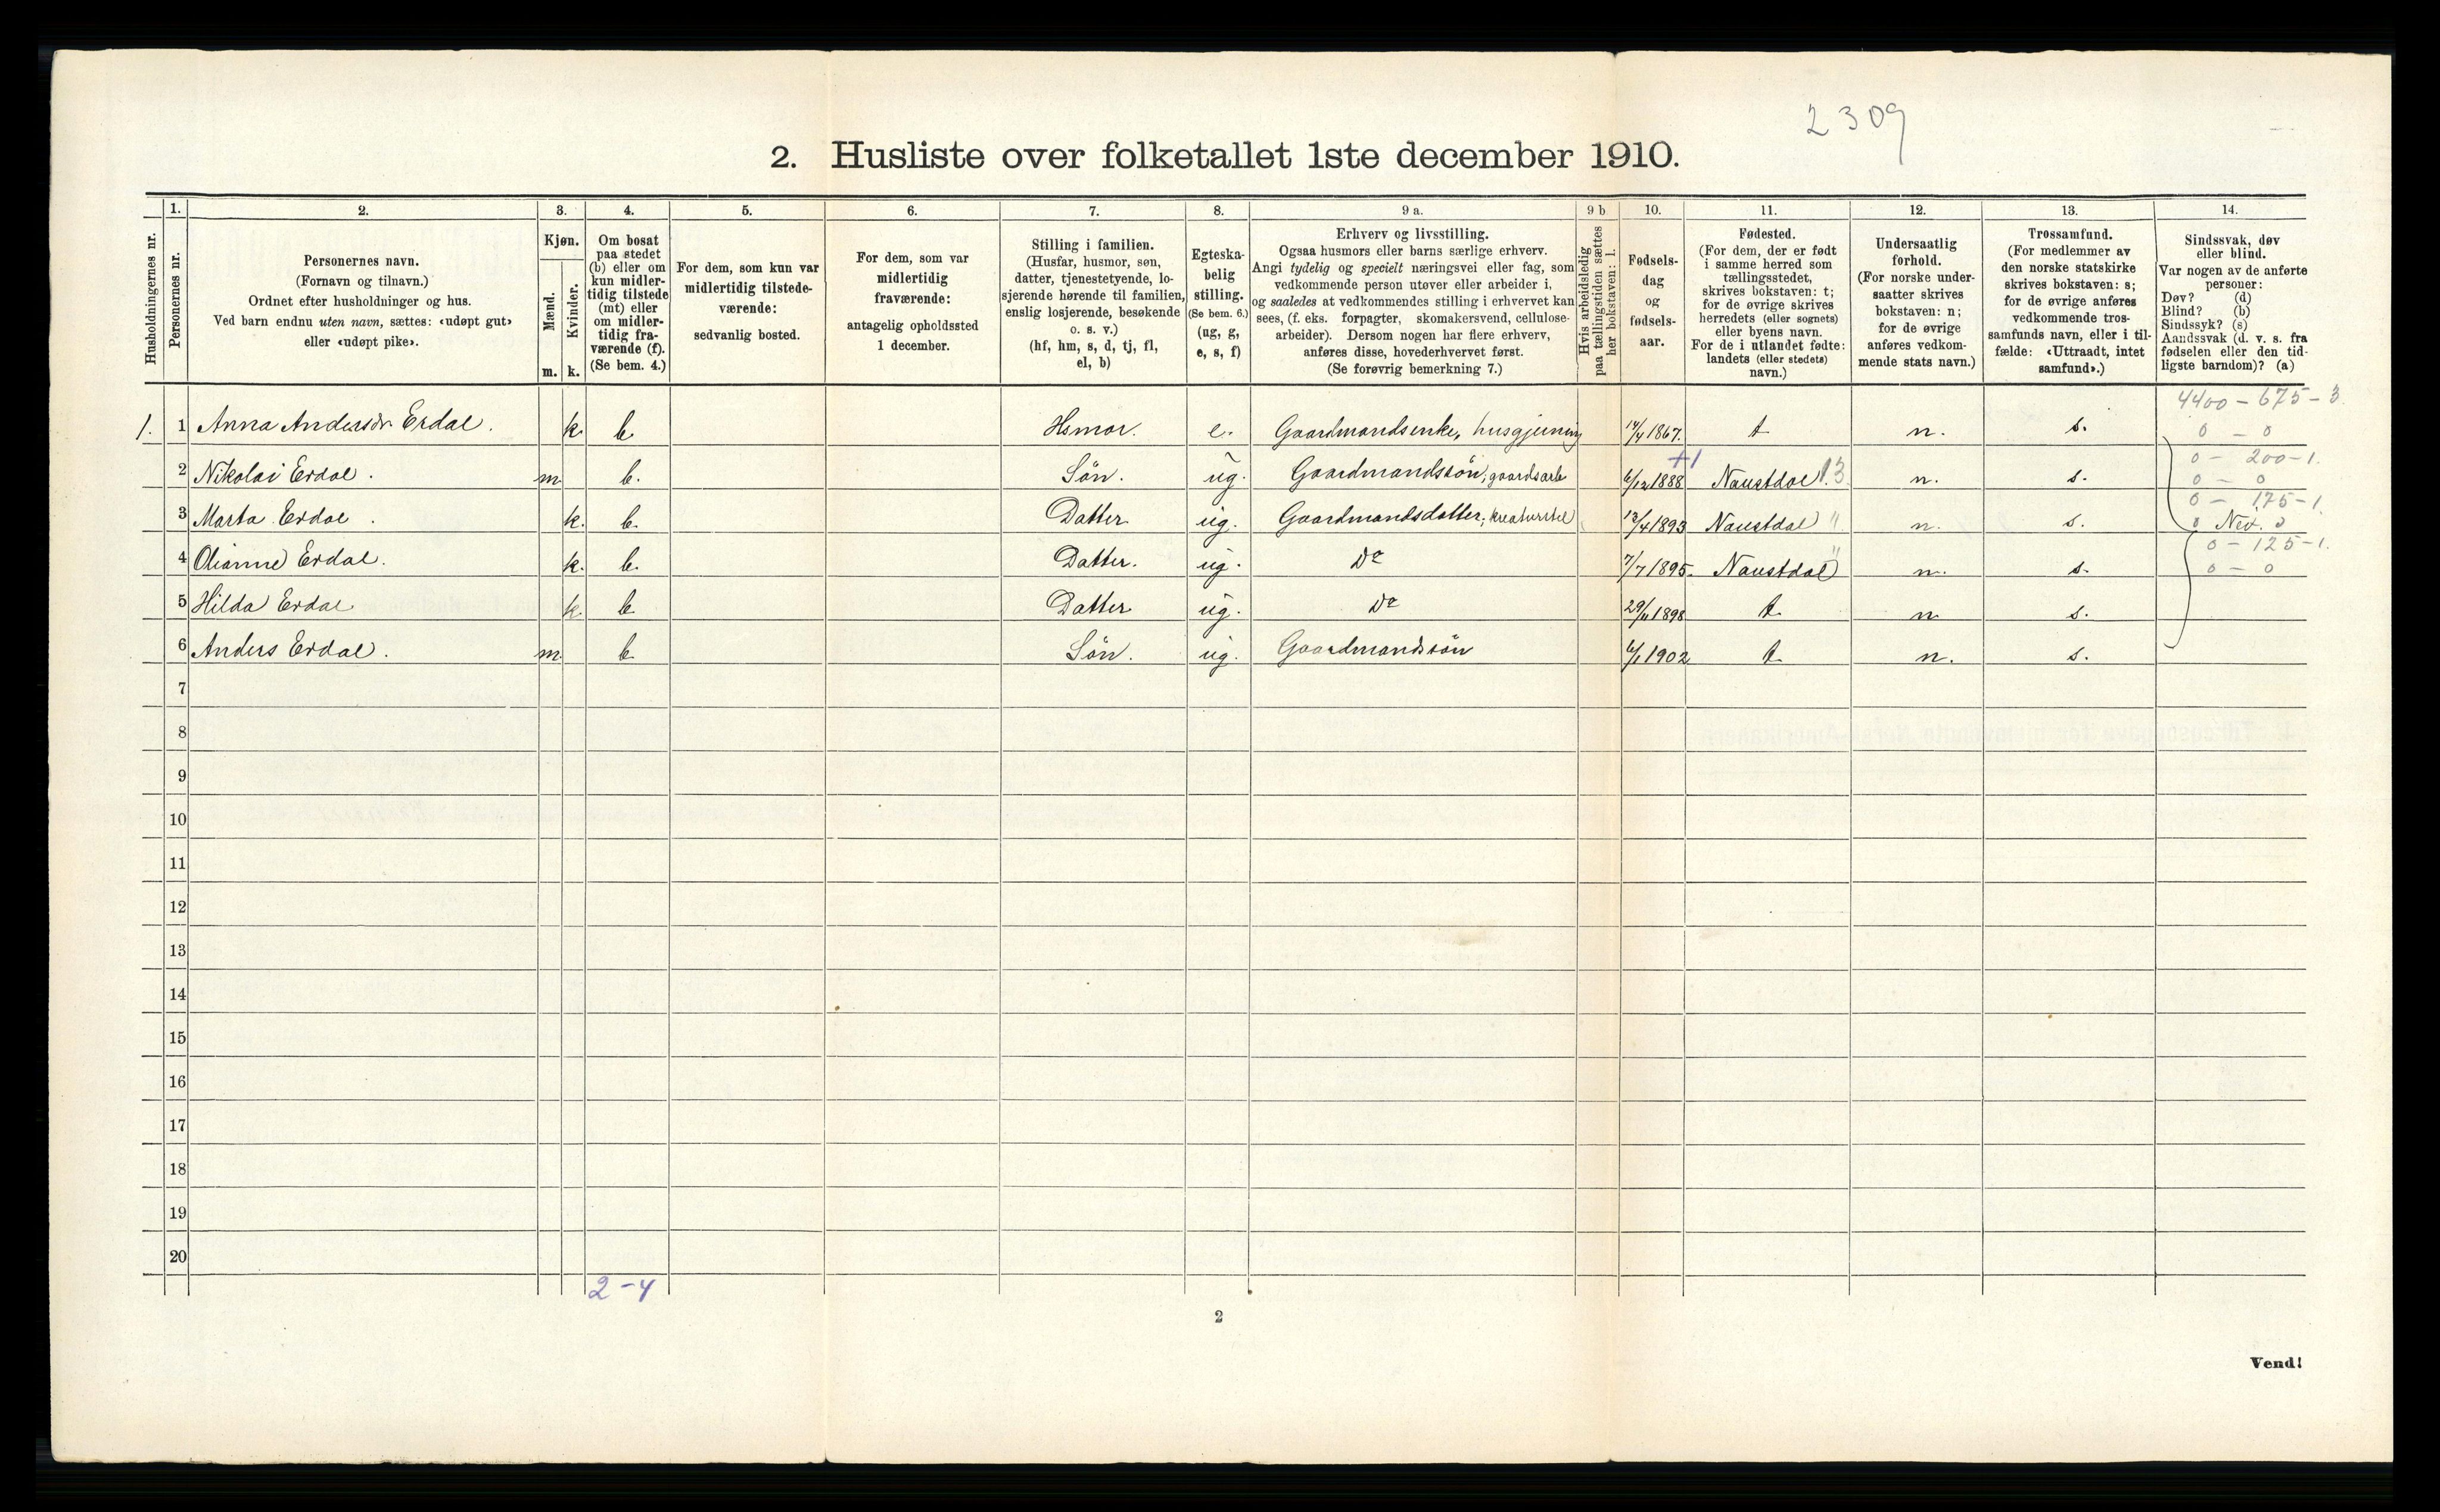 2309
2. Husliste over folketallet 1ste december 1910.
Husholdningernes nr.
1.
Personernes nr.
2.
Personernes navn.
(Fornavn og tilnavn.)
Ordnet efter husholdninger og hus.
Ved barn endnu uten navn, sættes: «udøpt gut»
eller «udøpt pike».
3.
Kjøn.
Mænd.
Kvinder.
m. k.
4.
Om bosat
paa stedet
(b) eller om
kun midler-
tidig tilstede
(mt) eller
om midler-
tidig fra-
værende (f).
(Se bem. 4.)
5.
For dem, som kun var
midlertidig tilstede-
værende:
sedvanlig bosted.
6.
For dem, som var
midlertidig
fraværende:
antagelig opholdssted
1 december.
7.
Stilling i familien.
(Husfar, husmor, søn,
datter, tjenestetyende, lo-
sjerende hørende til familien,
enslig losjerende, besøkende
o. s. v.)
(hf, hm, s, d, tj, fl,
el, b)
8.
Egteska-
belig
stilling.
(Se bem. 6.)
(ug, g,
e, s, f)
9 a.
Erhverv og livsstilling.
Ogsaa husmors eller barns særlige erhverv.
Angi tydelig og specielt næringsvei eller fag, som
vedkommende person utøver eller arbeider i,
og saaledes at vedkommendes stilling i erhvervet kan
sees, (f. eks. forpagter, skomakersvend, cellulose-
arbeider). Dersom nogen har flere erhverv,
anføres disse, hovederhvervet først.
(Se forøvrig bemerkning 7.)
9 b
Hvis arbeidsledig
paa tællingstiden sættes
her bokstaven: l.
10.
Fødsels-
dag
og
fødsels-
aar.
11.
Fødested.
(For dem, der er født
i samme herred som
tællingsstedet,
skrives bokstaven: t;
for de øvrige skrives
herredets (eller sognets)
eller byens navn.
For de i utlandet fødte:
landets (eller stedets)
navn.)
12.
Undersaatlig
forhold.
(For norske under-
saatter skrives
bokstaven: n;
for de øvrige
anføres vedkom-
mende stats navn.)
13.
Trossamfund.
(For medlemmer av
den norske statskirke
skrives bokstaven: s;
for de øvrige anføres
vedkommende tros-
samfunds navn, eller i til-
fælde: «Uttraadt, intet
samfund».)
14.
Sindssvak, døv
eller blind.
Var nogen av de anførte
personer:
Døv? (d)
Blind? (b)
Sindssyk? (s)
Aandssvak (d. v. s. fra
fødselen eller den tid-
ligste barndom)? (a)
4400 - 675 - 3
1. 1 Anna Andersdr Erdal. k. b. Hsmor. e. Gaardmandsenke, husgjerning 14/4 1867. t n. s. 0 - 0
+1 0 - 200 - 1.
2 Nikolai Erdal. m b. Sön. ug. Gaardmandssön, gaardsarb 6/12 1888 Naustdal 13. n. s. 0 - 0
0 - 175 - 1
3 Marta Erdal. k. b. Datter ug. Gaardmandsdatter, kreaturstel 13/4 1893 Naustdal " n. s. 0 Nev. 0
0 - 125 - 1.
4 Olianne Erdal. k. b. Datter. ug. Do 7/7 1895. Naustdal " n. s. 0 - 0
5 Hilda Erdal k b Datter ug. Do 29/11 1898 t. n s.
6 Anders Erdal. m b Sön. ug. Gaardmandssön 6/1 1902 t. n. s.
7
8
9
10
11
12
13
14
15
16
17
18
19
20
2 - 4
2
Vend!